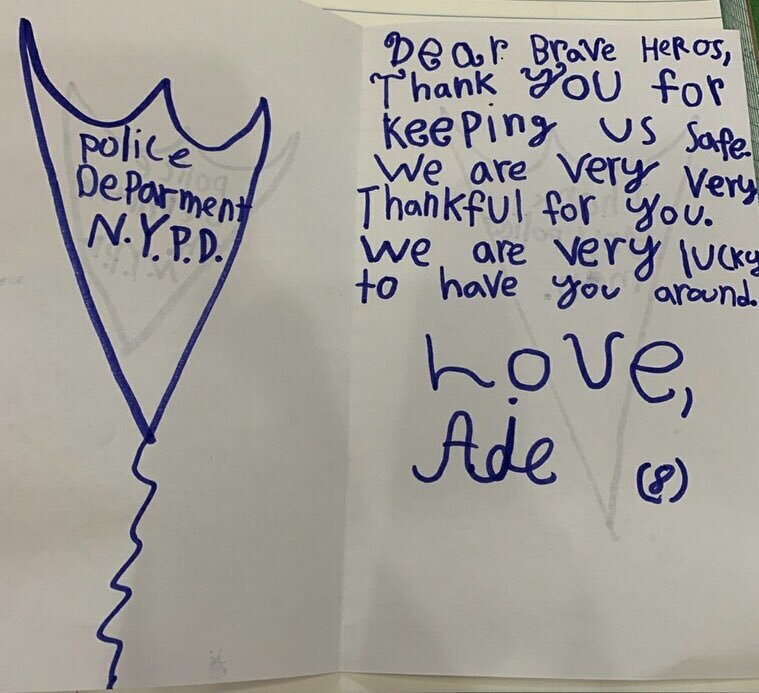 Police
Deparment
N.Y.P.D.
Dear Brave Heros,
Thank you for
keeping us safe.
We are very very
Thankful for you.
We are very lucky
to have you around.
Love,
Ade (8)